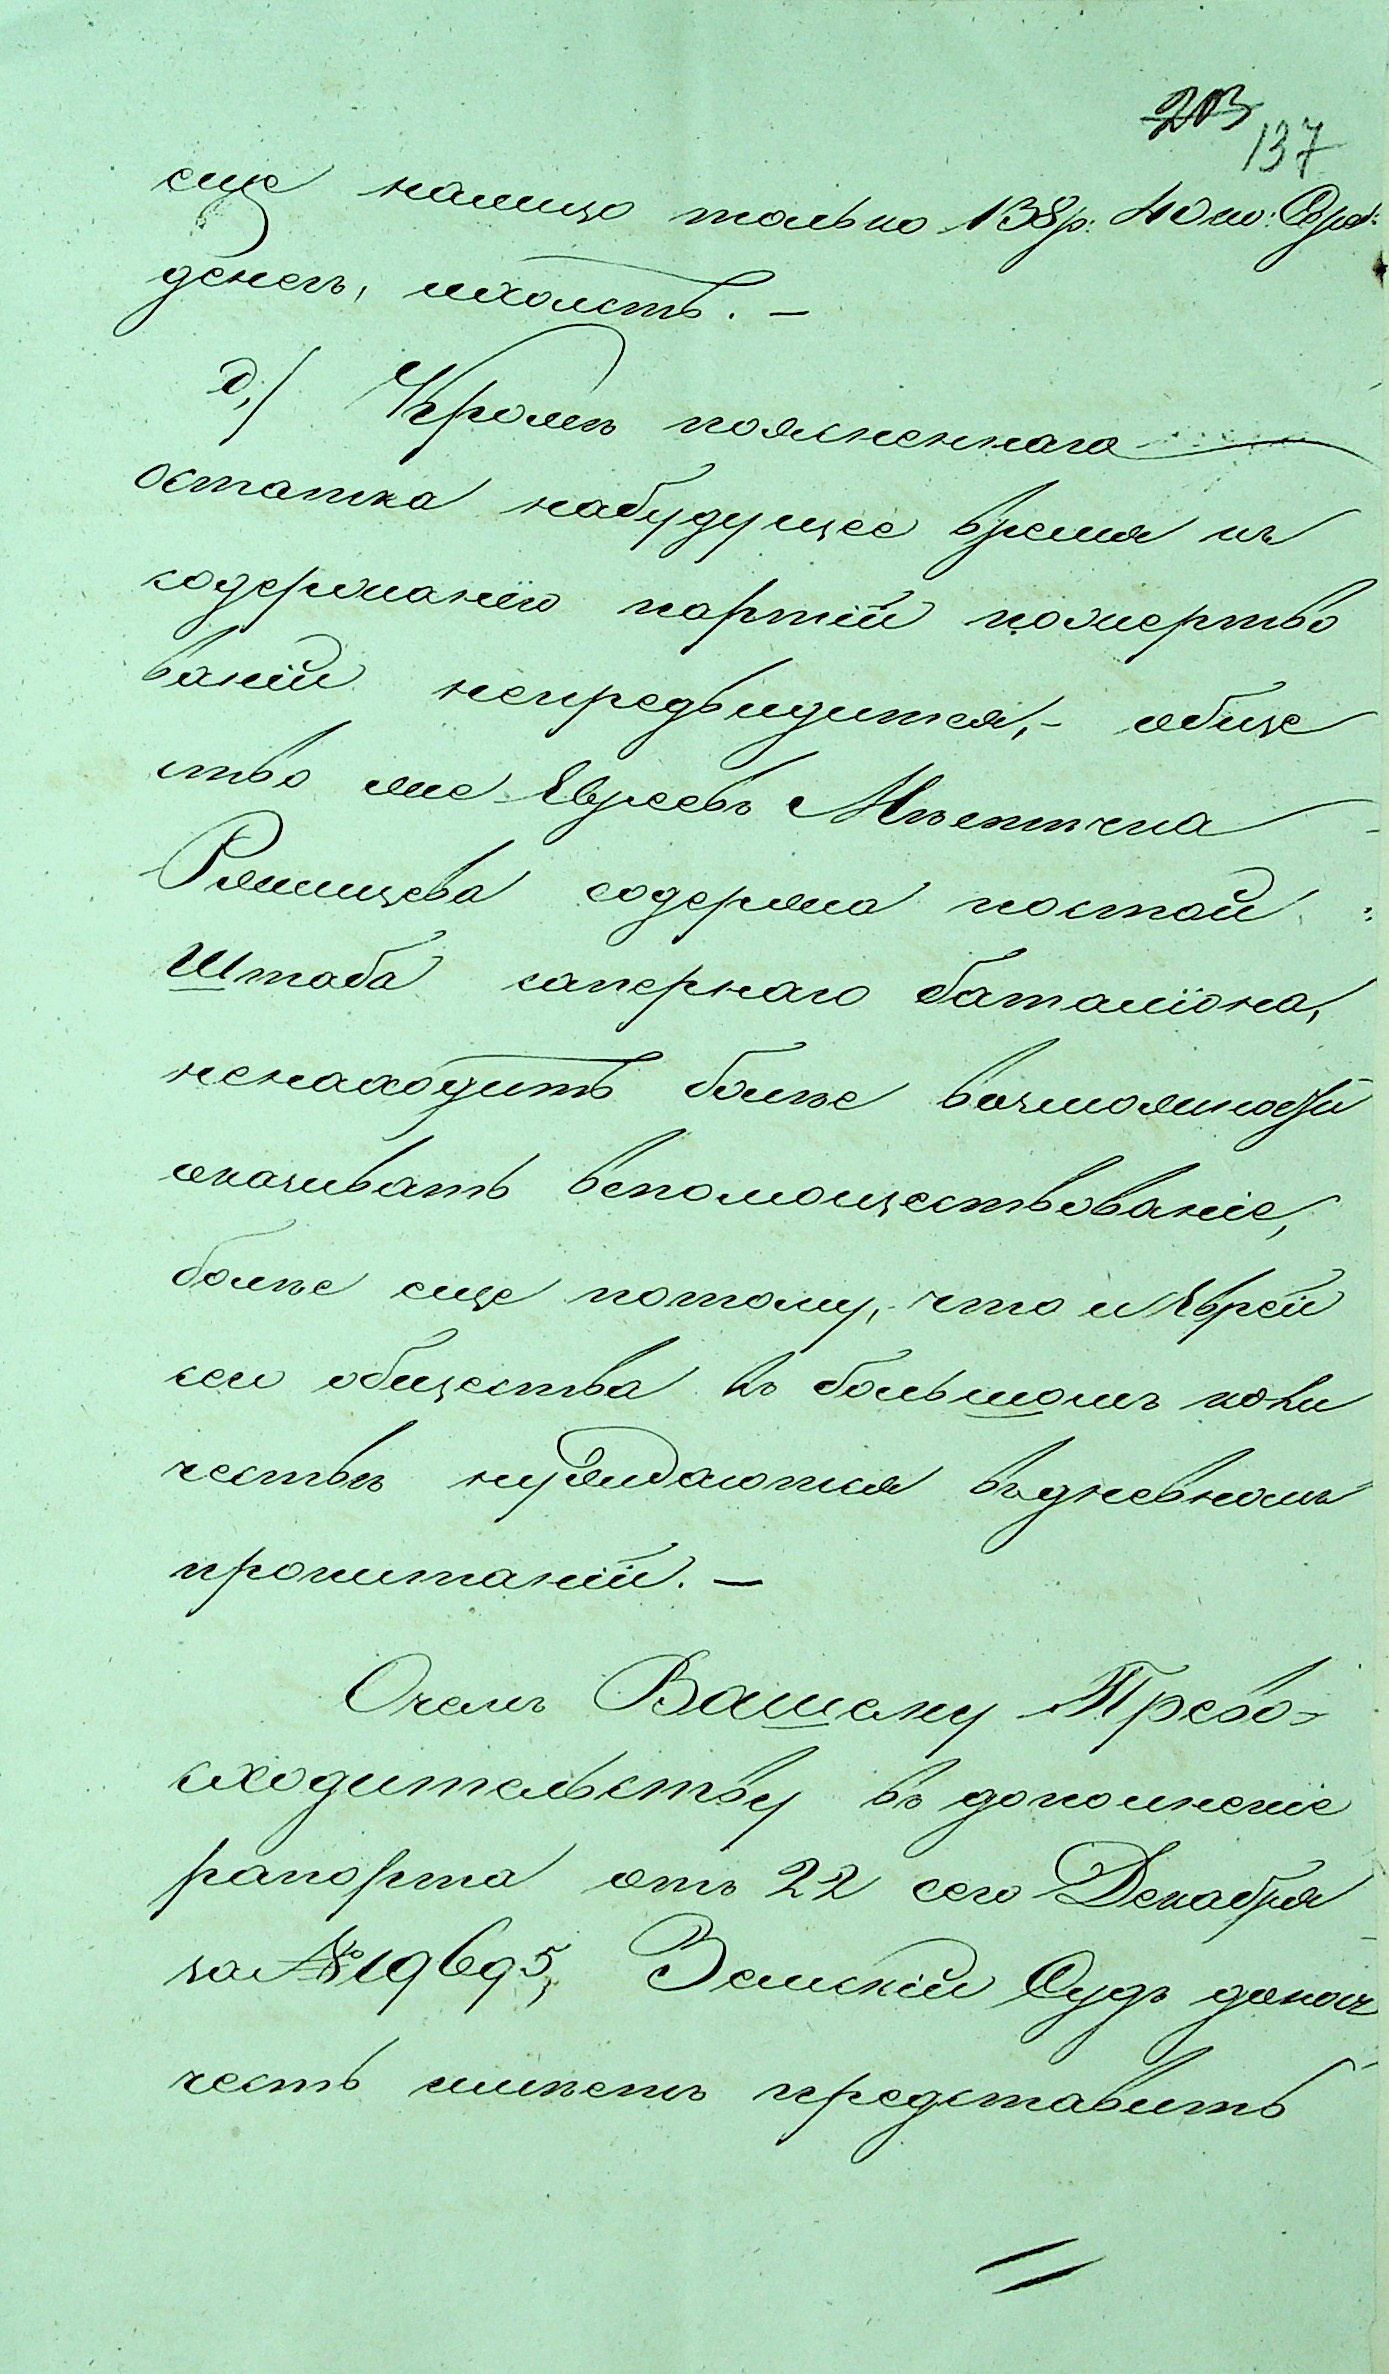 203
137
еще налицо только 138 р: 40 ко: Сер:
денегъ, и холстъ. —
д,) Кромѣ поясненнаго
остатка набудущее время къ
содержанію партій пожертво
ваній непредвидится, - обще
ство же Евреевъ Мѣстечка
Ржищева содержа постой
Штаба сапернаго баталіона,
ненаходитъ болѣе возможности
оказивать вспомоществованіе,
болѣе еще потому, что и Еврей
сего общества въ большомъ коли
чествѣ нуждаются въ дневномъ
пропитаній. —
О чемъ Вашему Прево-
сходительству въ дополненіе
рапорта отъ 22 сего Декабря
за № 19695, Земскій Судъ донося
честь имѣетъ представить